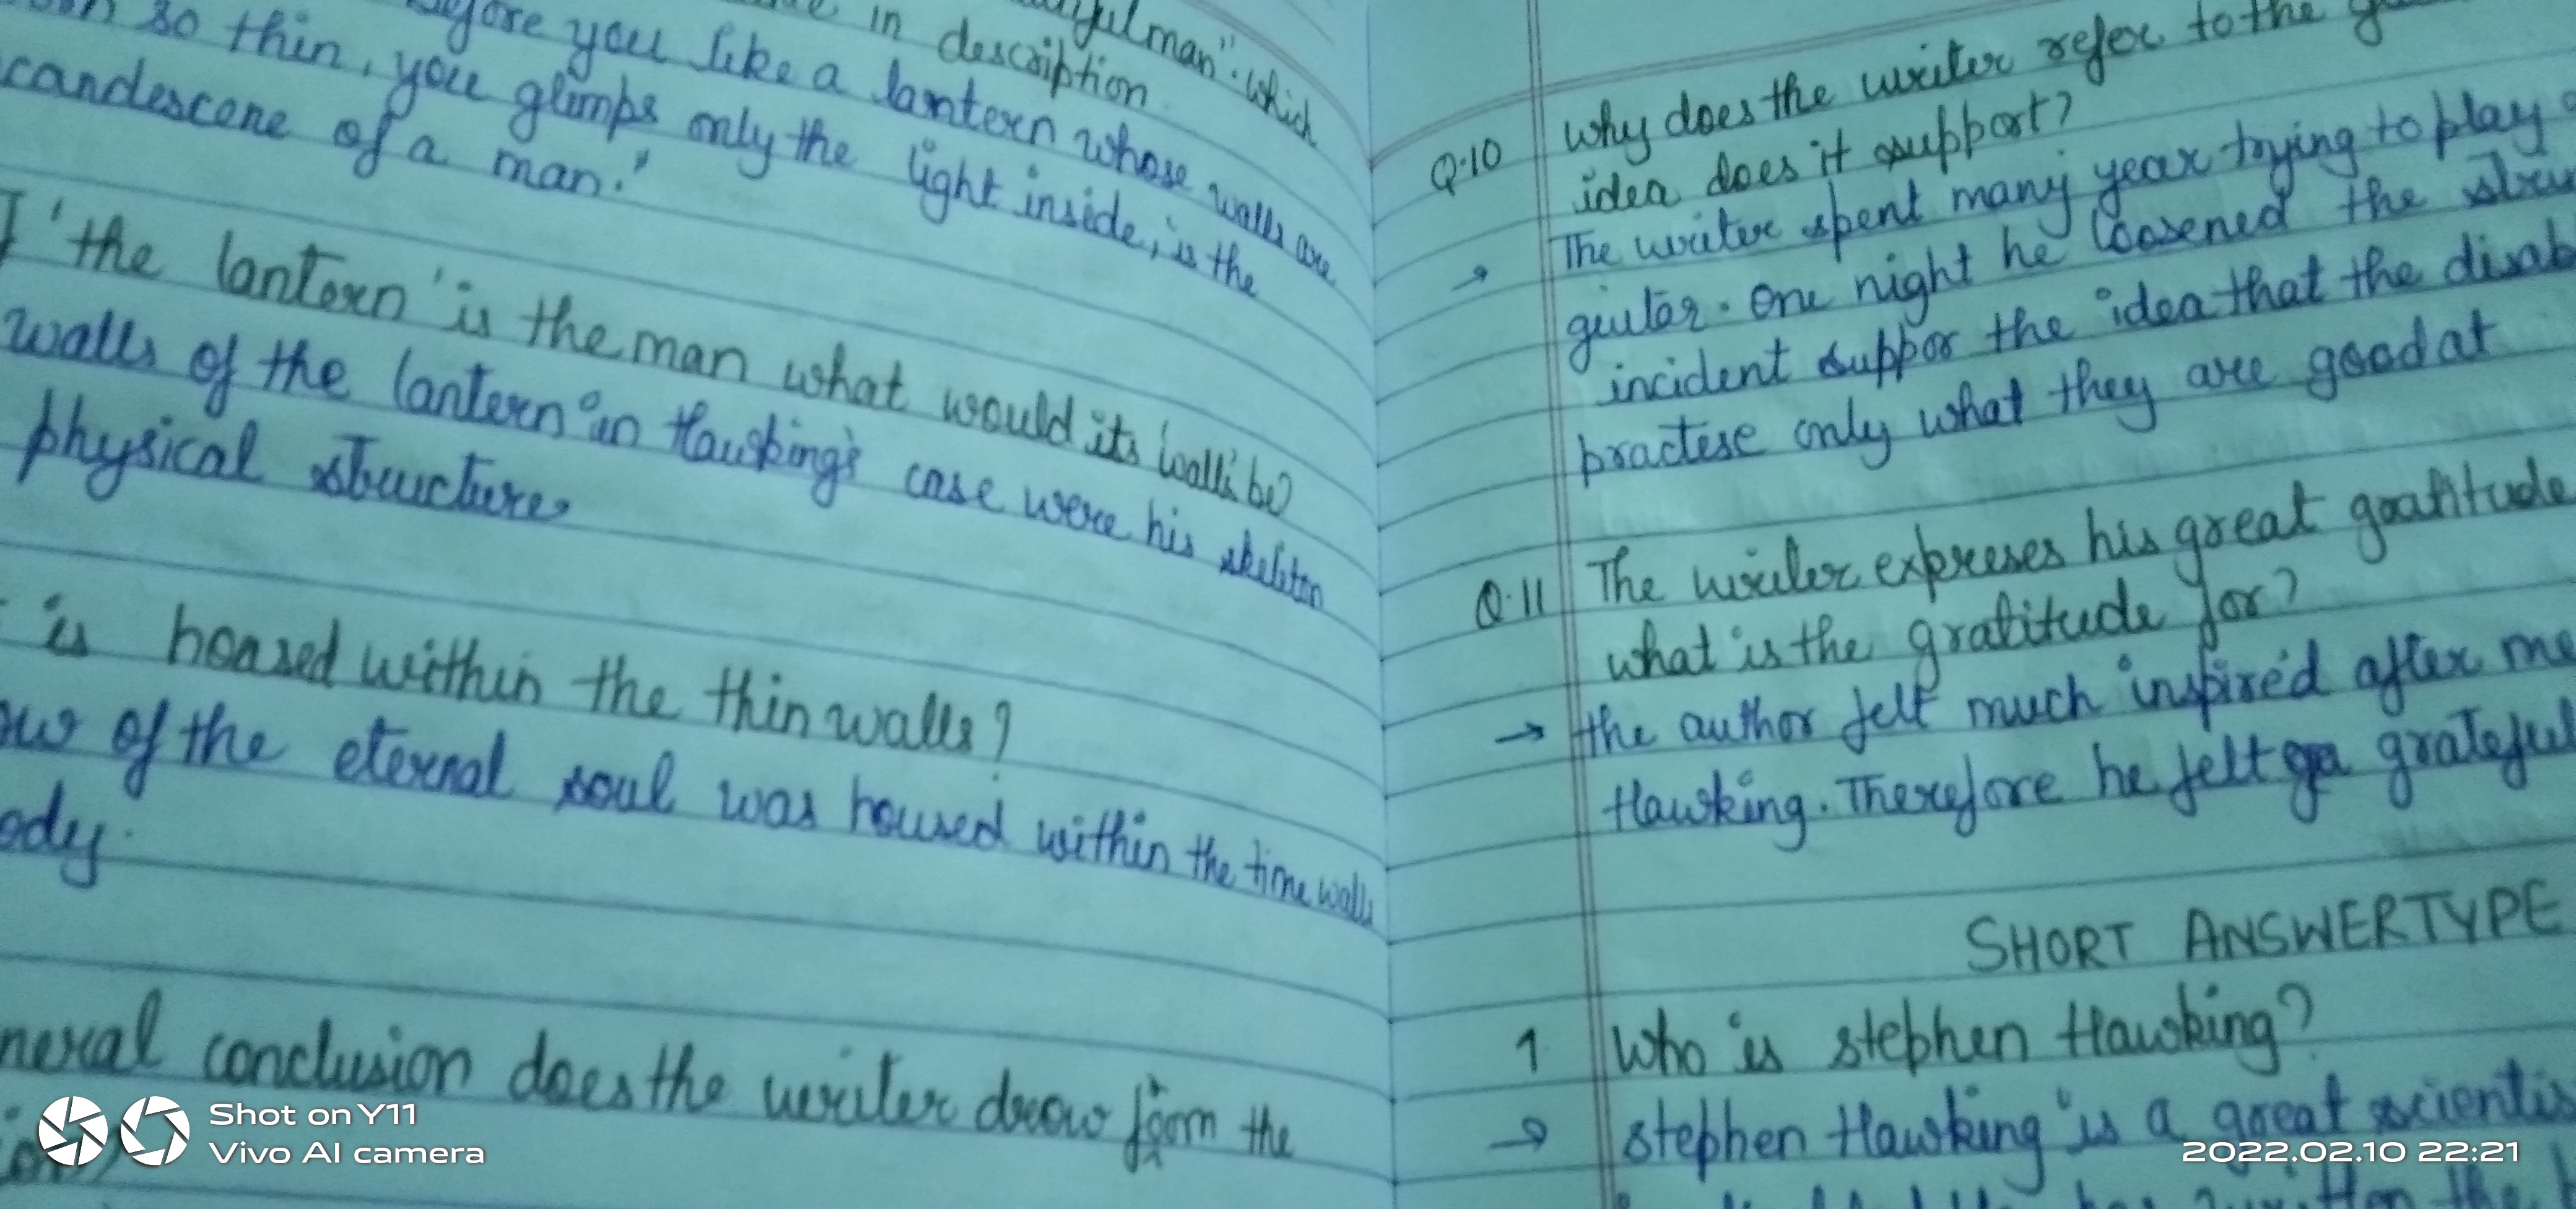 ful man". which
in description
before you like a lantern whose walls are
so thin, you glimps only the light inside, is the
candescene of a man."
I 'the lantern' is the man what would its walls be?
walls of the lantern in Hawking's case were his skeliton
physical structure.
is hoased within the thin walls?
of the eternal soul was housed within the time walls
ody.
neral conclusion does the writer drow from the
Q.10 why does the writer refer to the
idea does it support?
→ The writer spent many year trying to play
guitar. One night he loosened the
incident suppor the idea that the disab
practise only what they are good at
Q.11 The writer expreses his great gratitude
what is the gratitude for?
→ the author felt much inspired after me
Hawking. Therefore he felt ga grateful
SHORT ANSWERTYPE
1 Who is stephen Hawking?
→ stephen Hawking is a great scientis
Shot on Y11
Vivo AI camera
2022.02.10 22:21